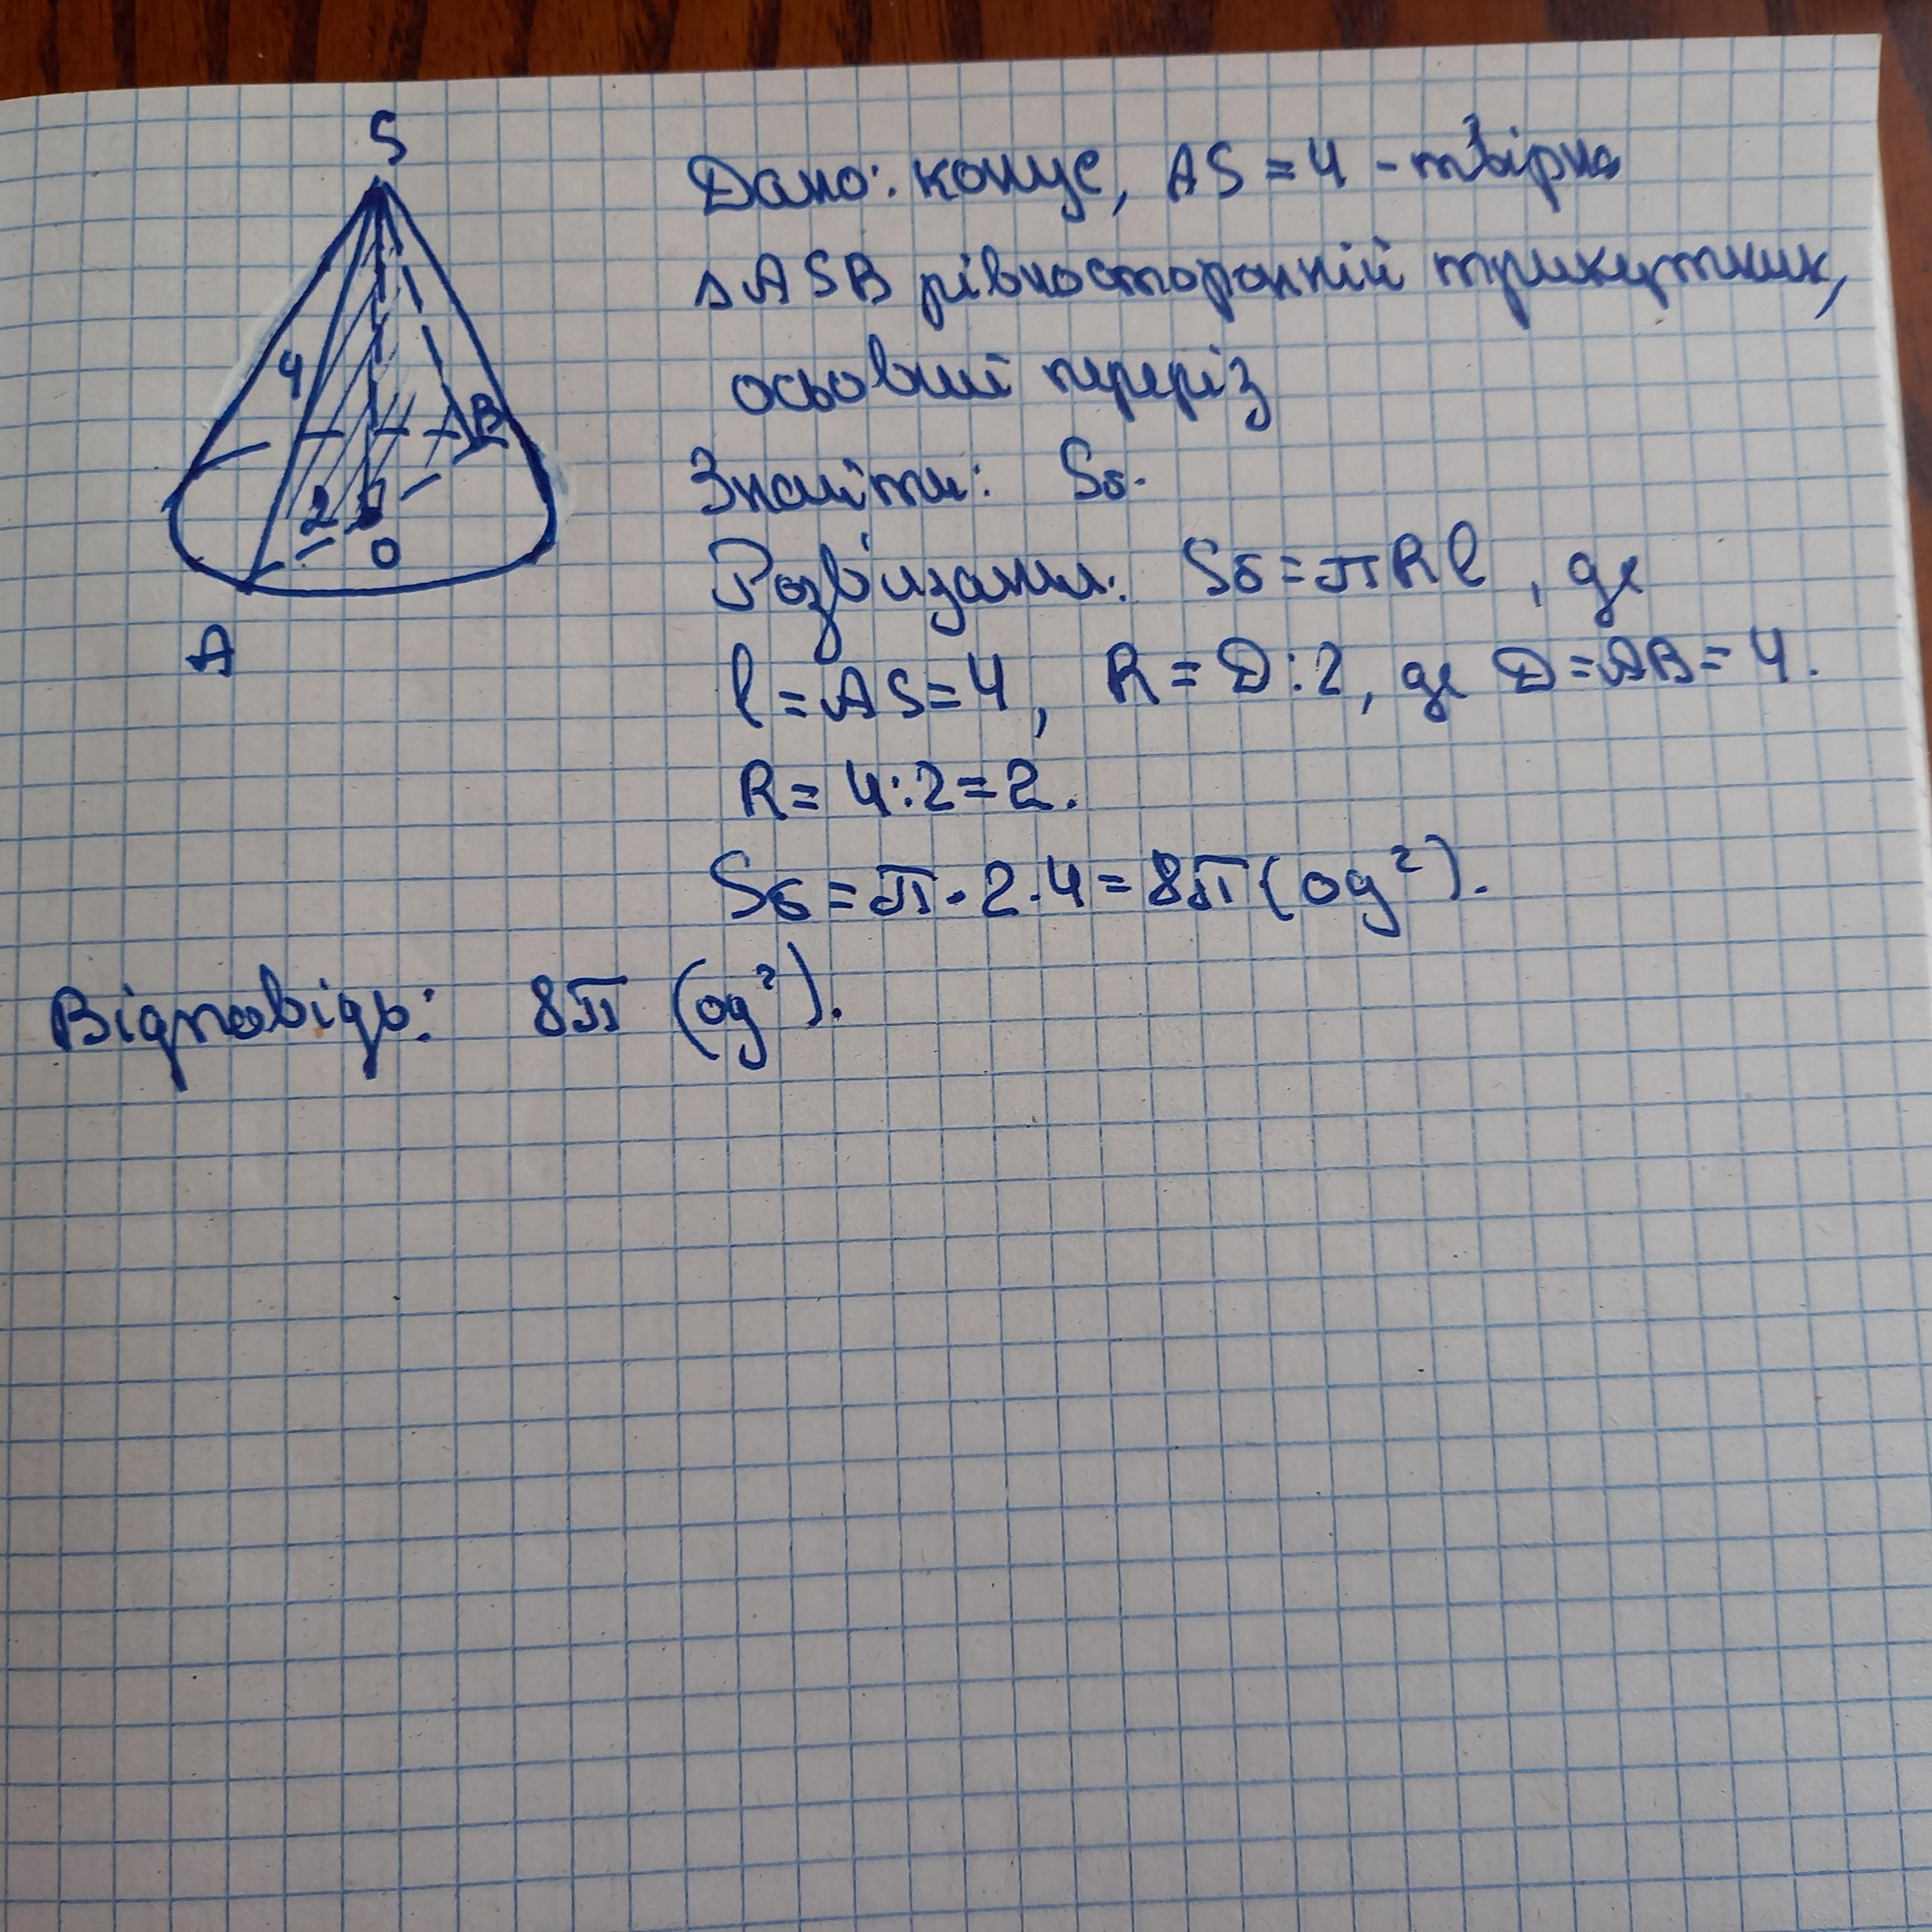 S
4
B
2
O
A
Дано: конус, AS = 4 - твірна
△ASB рівносторонній трикутник,
осьовий переріз
Знайти: Sб.
Розв'язання: Sб = πRl, де
l = AS = 4, R = D:2, де D = AB = 4.
R = 4:2 = 2.
Sб = π·2·4 = 8π (од²).
Відповідь: 8π (од²).